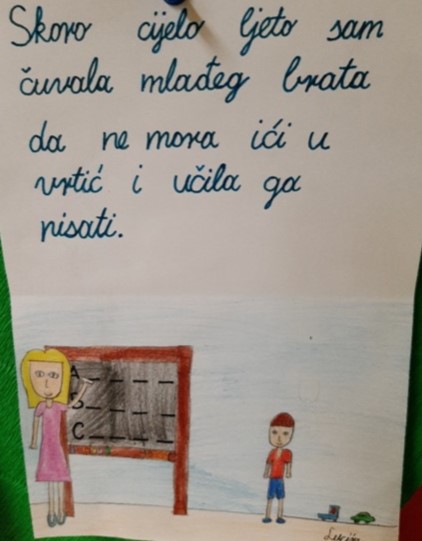 Skoro cijelo ljeto sam
čuvala mlađeg brata
da ne mora ići u
vrtić i učila ga
pisati.
A
B
C